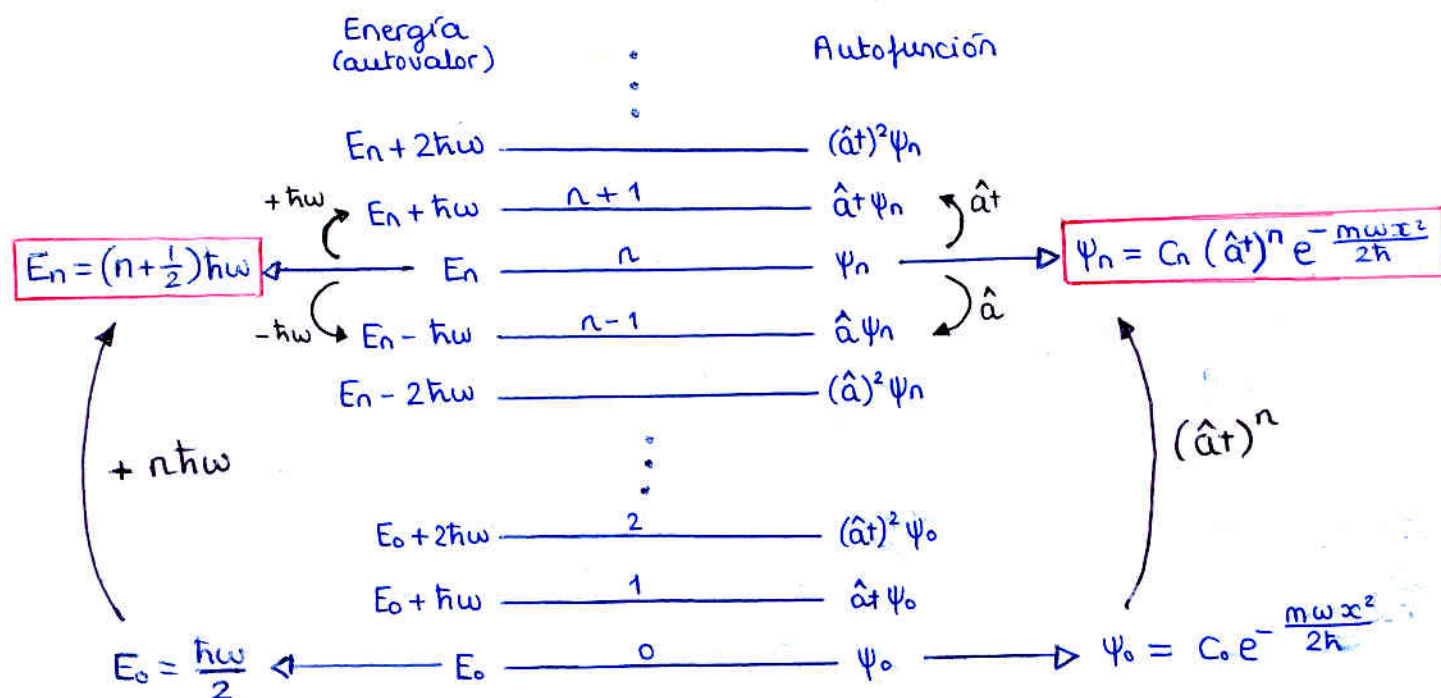 Energía
(autovalor)
Autofunción
Eₙ + 2ħω (â†)²ψₙ
+ħω Eₙ + ħω n+1 â†ψₙ â†
Eₙ = (n+½)ħω Eₙ n ψₙ ψₙ = Cₙ (â†)ⁿ e^(-mωx²/2ħ)
-ħω Eₙ - ħω n-1 âψₙ â
Eₙ - 2ħω (â)²ψₙ
+ nħω (â†)ⁿ
E₀ + 2ħω 2 (â†)²ψ₀
E₀ + ħω 1 â†ψ₀
E₀ = ħω/2 E₀ 0 ψ₀ ψ₀ = C₀ e^(-mωx²/2ħ)